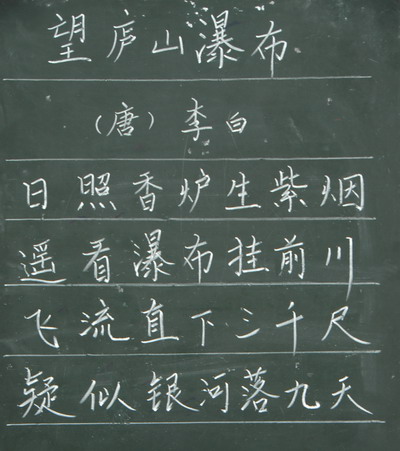 望庐山瀑布
（唐）李白
日照香炉生紫烟
遥看瀑布挂前川
飞流直下三千尺
疑似银河落九天